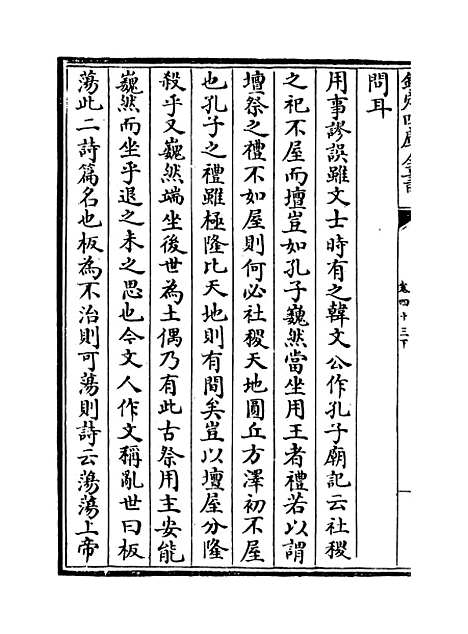 欽定四庫全書
卷四十三下
問耳
用事謬誤雖文士時有之韓文公作孔子廟記云社稷
之祀不屋而壇豈如孔子巍然當坐用王者禮若以謂
壇祭之禮不如屋則何必社稷天地圓丘方澤初不屋
也孔子之禮雖極隆比天地則有間矣豈以壇屋分隆
殺乎又巍然端坐後世為土偶乃有此古祭用主安能
巍然而坐乎退之未之思也今文人作文稱亂世曰板
蕩此二詩篇名也板為不治則可蕩則詩云蕩蕩上帝